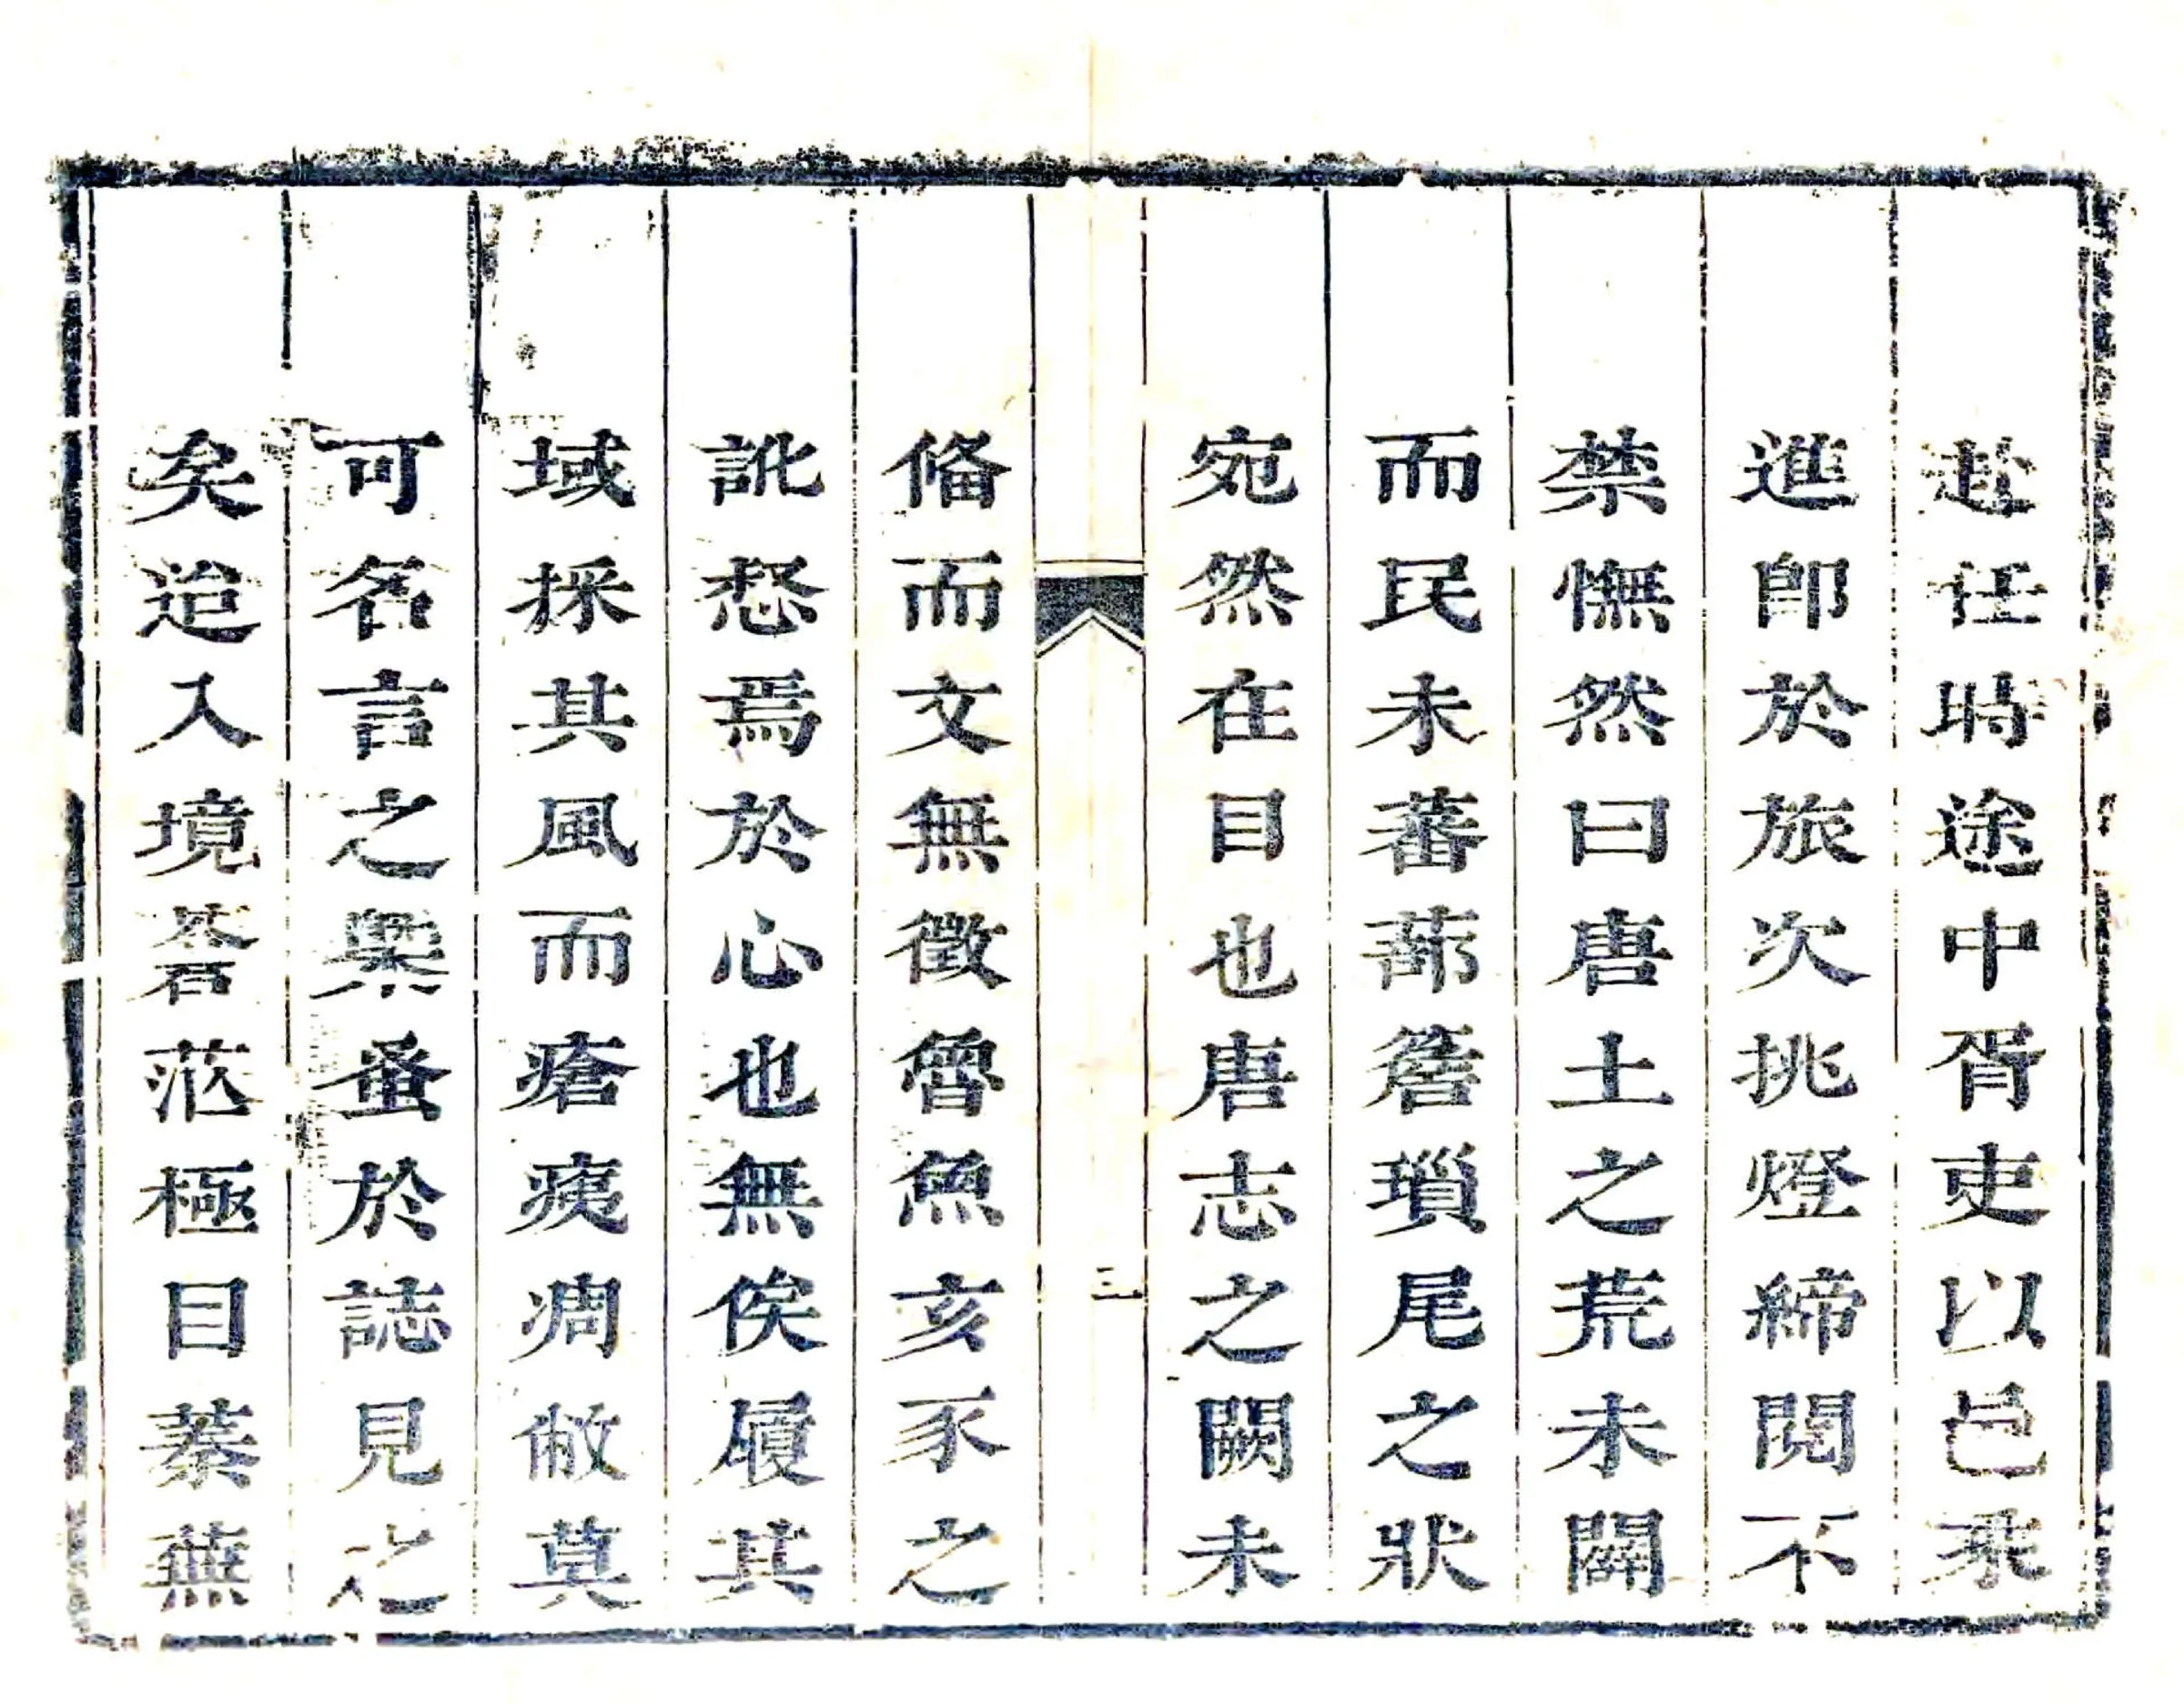 赴任時途中胥吏以邑乘
進卽於旅次挑燈締閱不
禁憮然曰唐土之荒未闢
而民未蕃蔀簷瑣尾之狀
宛然在目也唐志之闕未
三
俻而文無徵魯魚亥豕之
訛惄焉於心也無俟履其
域採其風而瘡痍凋敝莫
可名言之槩蚤於誌見之
矣迨入境茫極目蓁蕪